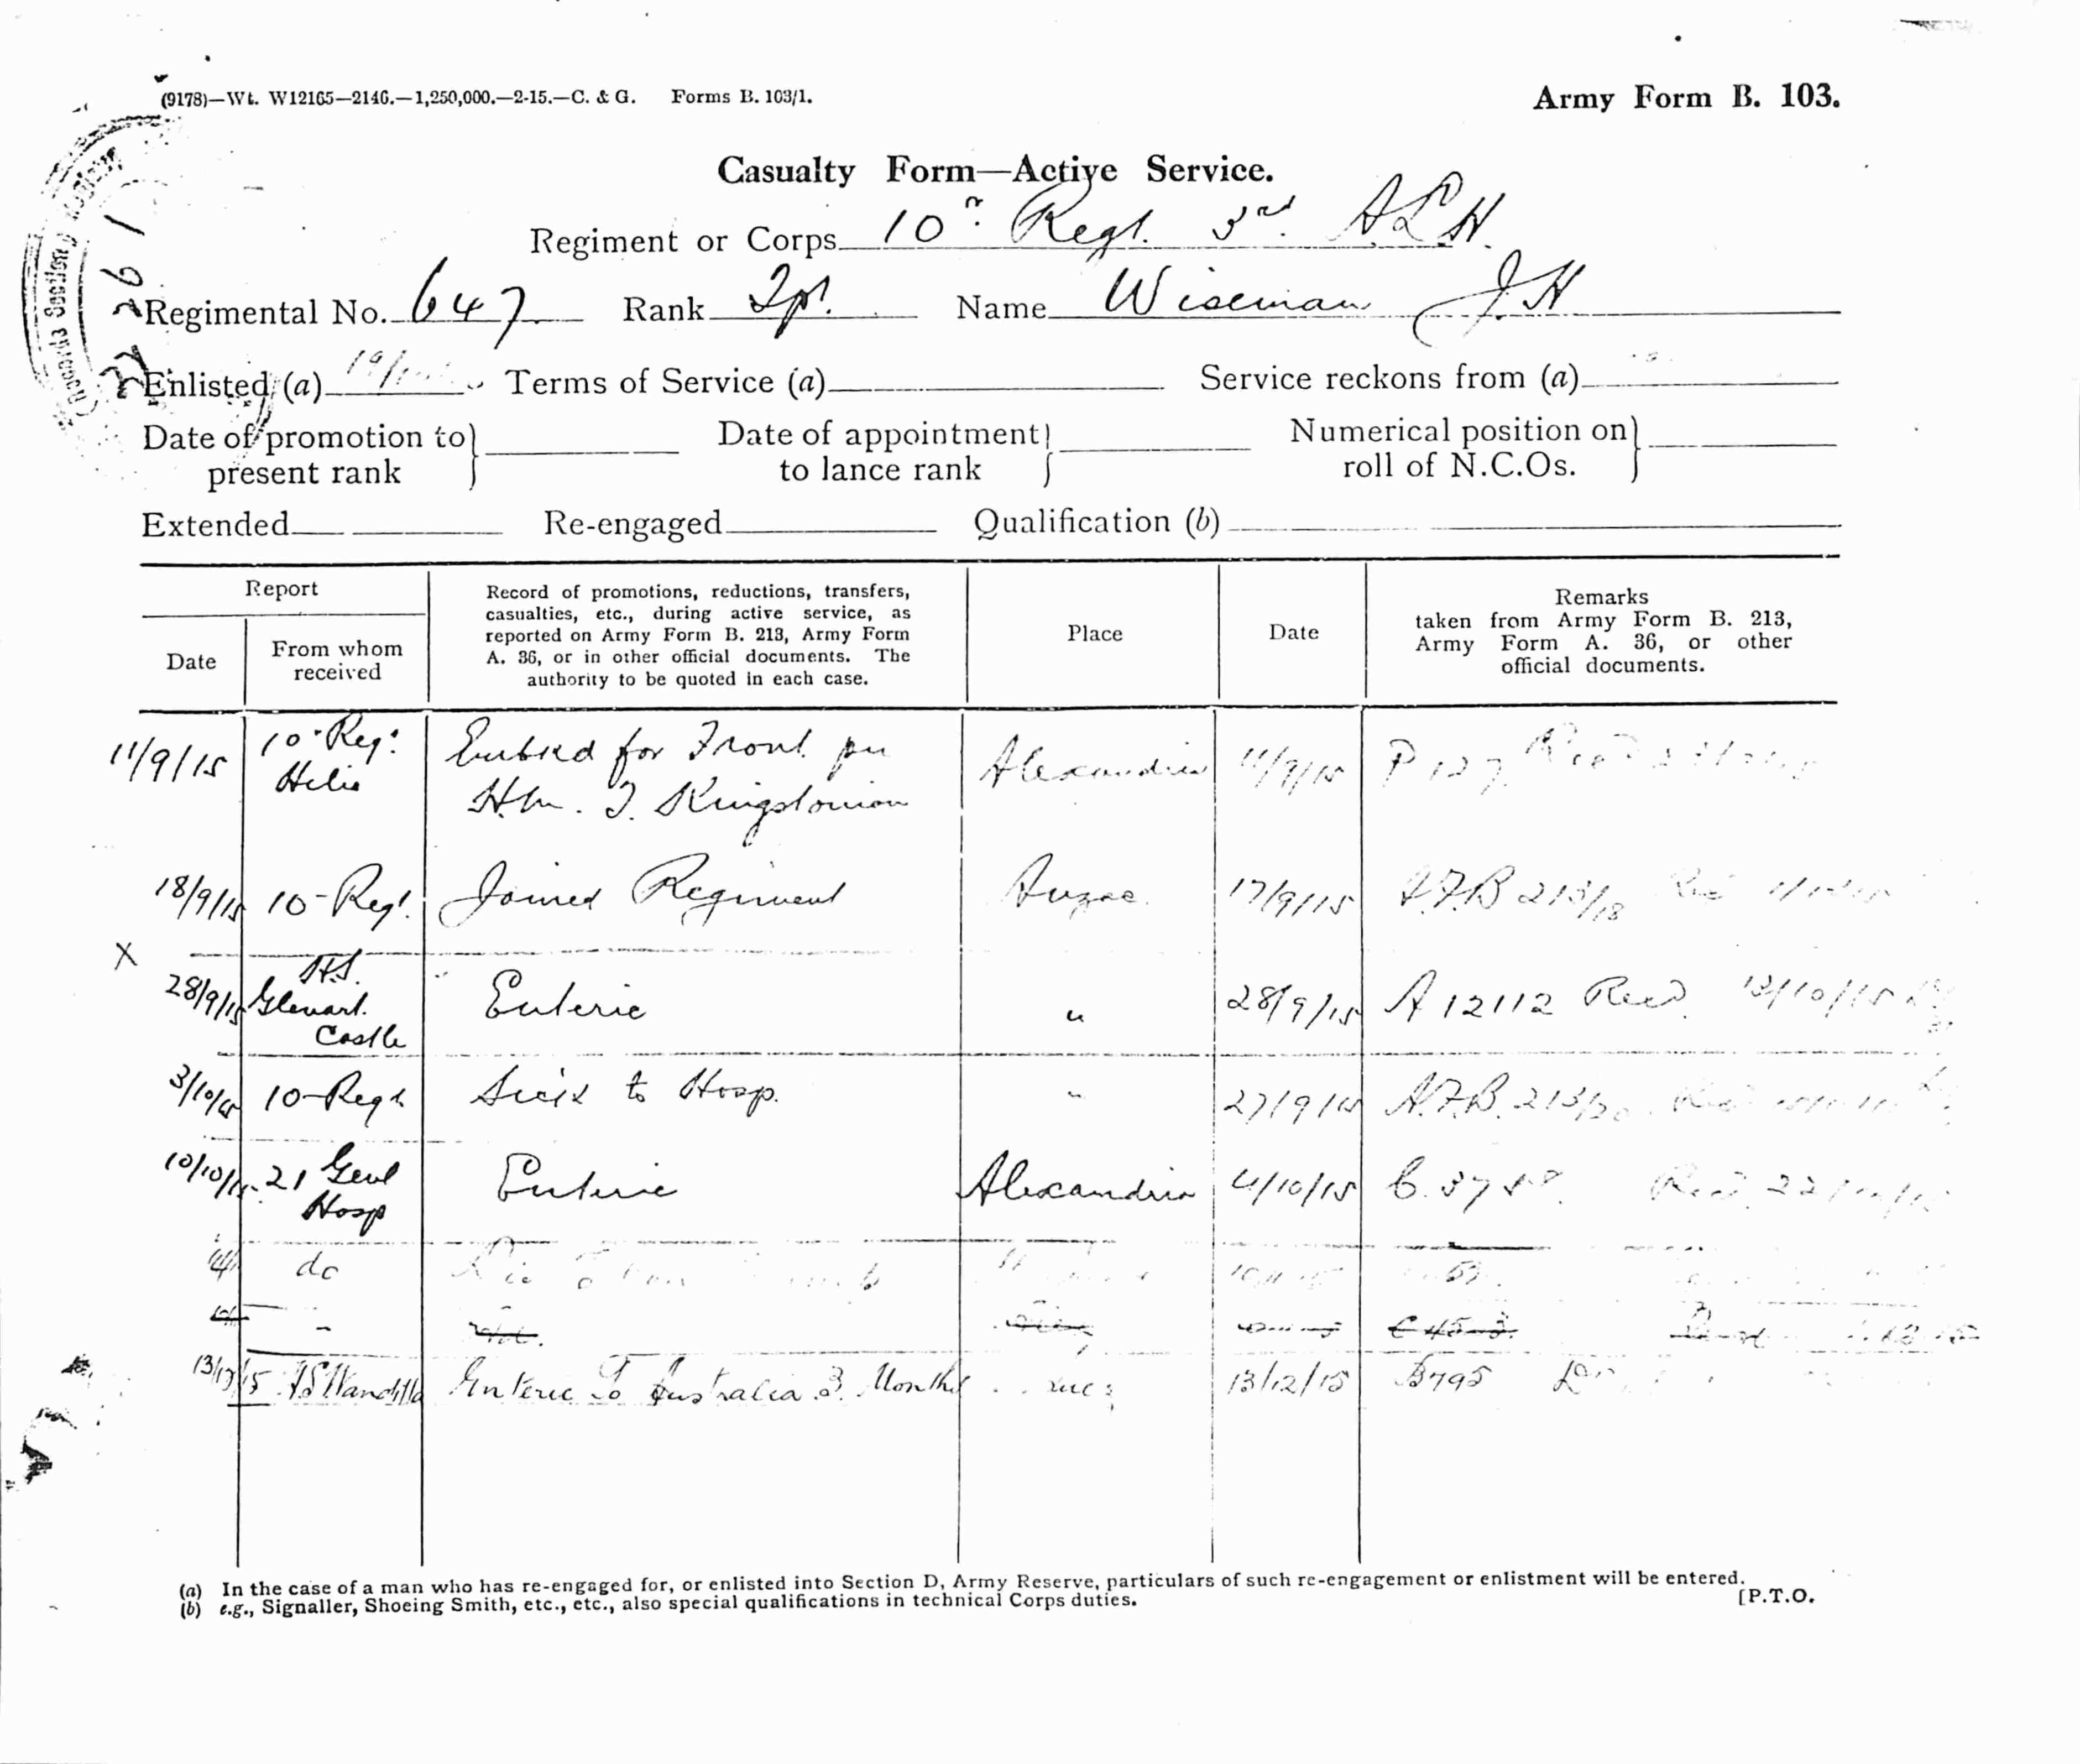 (9178)—Wt. W12165—2146.—1,250,000.—2-15.—C. & G. Forms B. 103/1.
Army Form B. 103.
Casualty Form—Active Service.
Regiment or Corps 10th Regt. 3rd A.L.H.
Regimental No. 647 Rank Tpr. Name Wiseman J.H
Enlisted (a) Terms of Service (a) Service reckons from (a)
Date of promotion to present rank
Date of appointment to lance rank
Numerical position on roll of N.C.Os.
Extended Re-engaged Qualification (b)
Report
Date
From whom received
Record of promotions, reductions, transfers,
casualties, etc., during active service, as
reported on Army Form B. 213, Army Form
A. 36, or in other official documents. The
authority to be quoted in each case.
Place
Date
Remarks
taken from Army Form B. 213,
Army Form A. 36, or other
official documents.
11/9/15 10 Reg. Helio Embkd for Front per Alexandria 11/9/15 P 127
H.M. T. Kingstonian
18/9/15 10 Regt. Joined Regiment Anzac 17/9/15 A.F.B 213/18
X
28/9/15 H.S. Glenart Castle Enteric " 28/9/15 A 12112 Recd 13/10/15
3/10/15 10 Regt Sick to Hosp. " 27/9/15 A.F.B. 213/20
10/10/15 21 Genl Hosp Enteric Alexandria 4/10/15
do
13/12/15 HS Wandilla Enteric To Australia 3 Months 13/12/15 B795
(a) In the case of a man who has re-engaged for, or enlisted into Section D, Army Reserve, particulars of such re-engagement or enlistment will be entered.
(b) e.g., Signaller, Shoeing Smith, etc., etc., also special qualifications in technical Corps duties. [P.T.O.